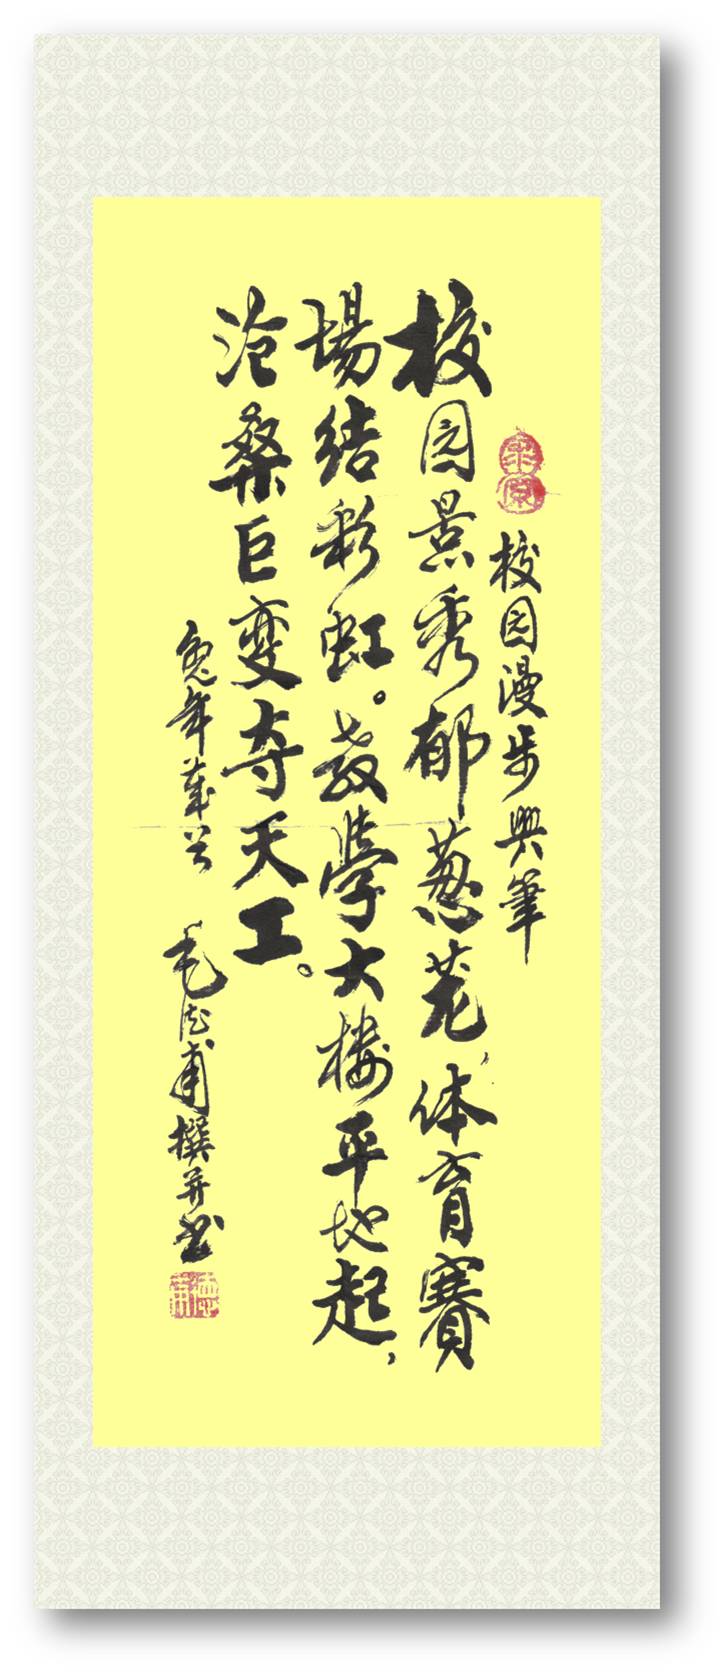 校园漫步興筆
校园景秀郁葱茏，体育賽
場结彩虹。教學大楼平地起，
沧桑巨变夺天工。
兔年
毛德甫撰并书
德甫